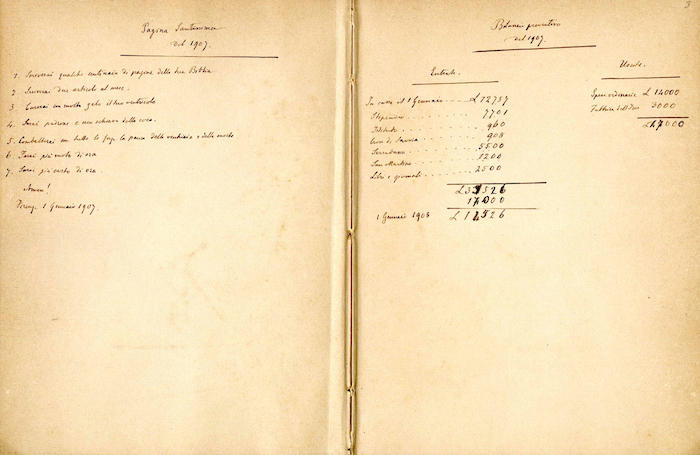 3
Pagina Santissima
del 1907.
1. Scriverai qualche centinaio di pagine della tua Bibbia
2 Scriverai due articoli al mese.
3 Curerai con molto zelo il tuo ventricolo
4. Sarai padrone e non schiavo della cosa.
5. Combatterai con tutte le forze la paura della vecchiaia e della morte
6 Sarai più
7. Sarai più casto di ora.
Amen!
1 Gennaio 1907.
Bilancio preventivo
del 1907.
Entrate.
In cassa al 1 Gennaio £ 12757
Stipendio 7701
960
908
5500
San Martino 1200
Libri e giornali 2500
£
1 Gennaio 1908 £
Uscite.
Spese ordinarie £ 14000
3000
£ 17000